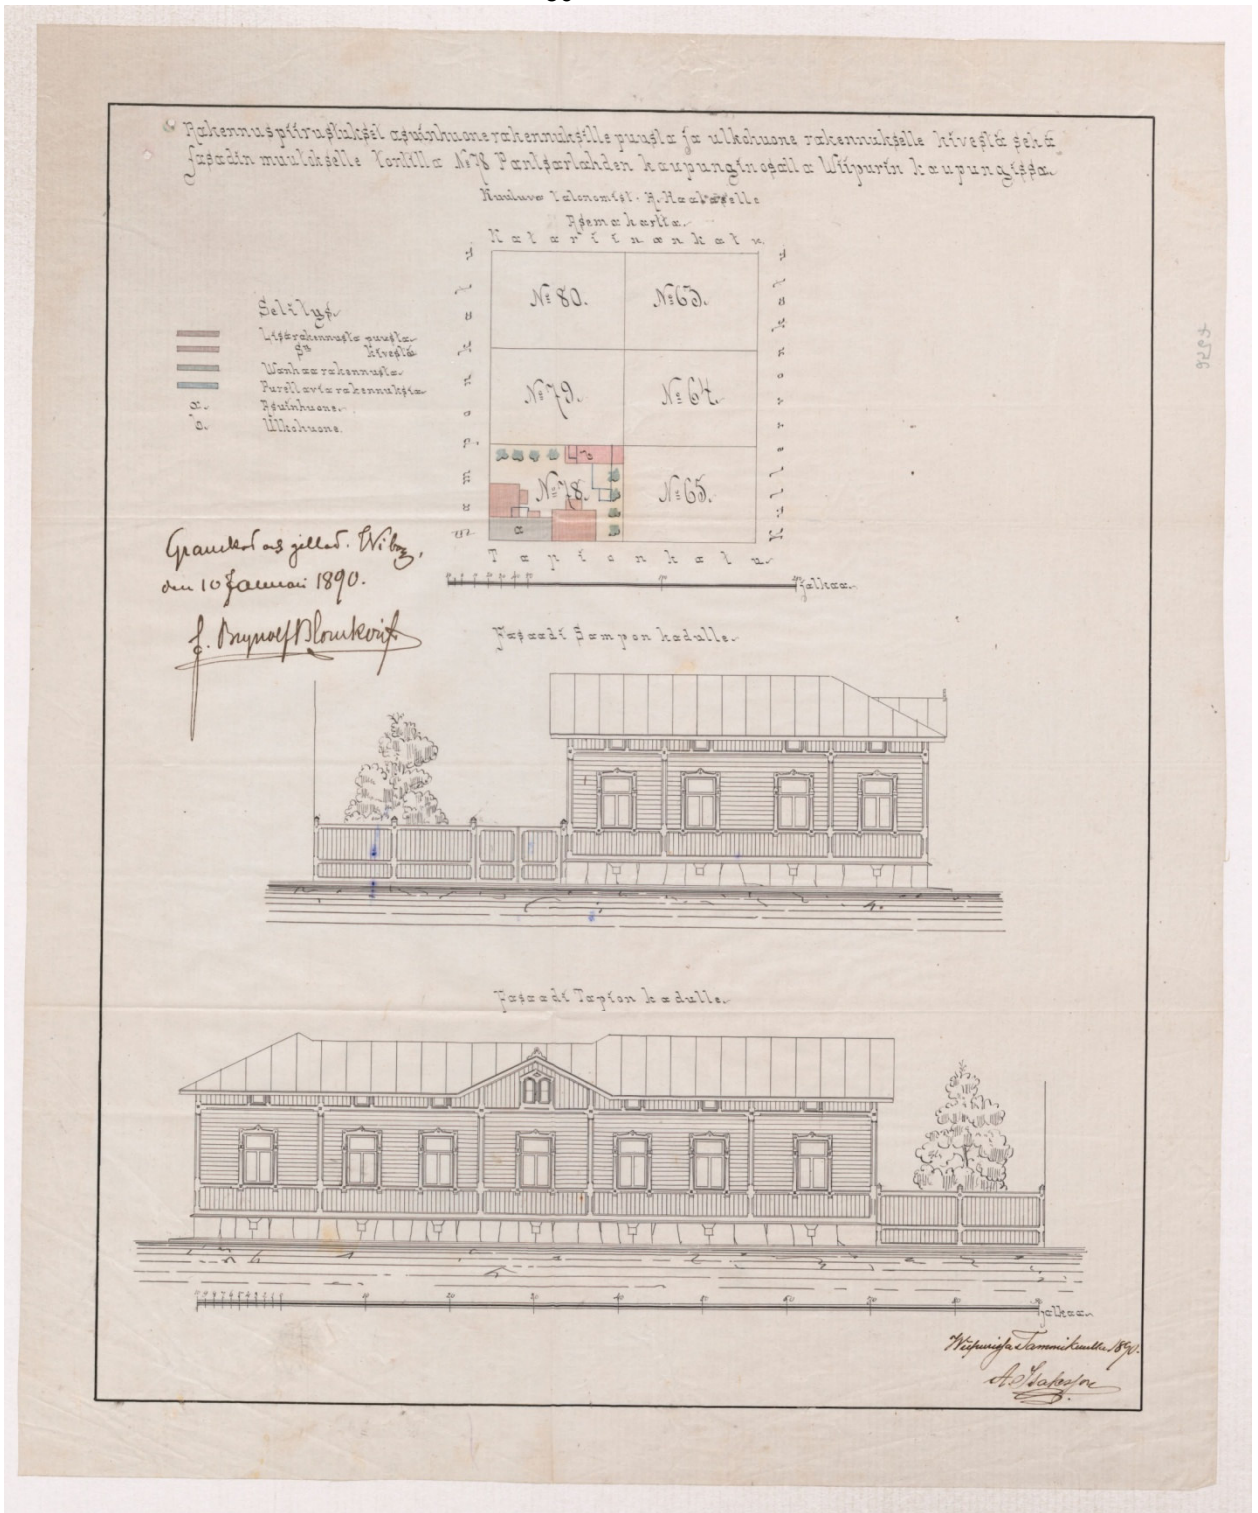 Rakennuspiirustukset asuinhuonerakennuksille puusta ja ulkohuone rakennukselle kivestä sekä
fasadin muutokselle tontilla № 78 Pantsarlahden kaupunginosalla Wiipurin kaupungissa.
Kuuluva talonomist. A.
Asemakartta.
Katariinankatu.
Sammonkatu
Kullervonkatu
№ 80.
№ 63.
№ 79.
№ 64.
№ 78.
№ 65.
a
b
Tapionkatu.
Jalkaa.
Selitys.
Lisärakennusta puusta.
Sn kivestä
Wanhaa rakennusta.
Purettavia rakennuksia
a. Asuinhuone.
b. Ulkohuone.
Granskad och gillad. Wiborg,
den 10 Januari 1890.
J. Brynolf Blomkvist
Fasaadi Sampon kadulle.
Fasaadi Tapion kadulle.
10 20 30 40 50 60 70 80 90
Jalkaa.
Wiipurissa Tammikuulla 1890.
A. Isaksson